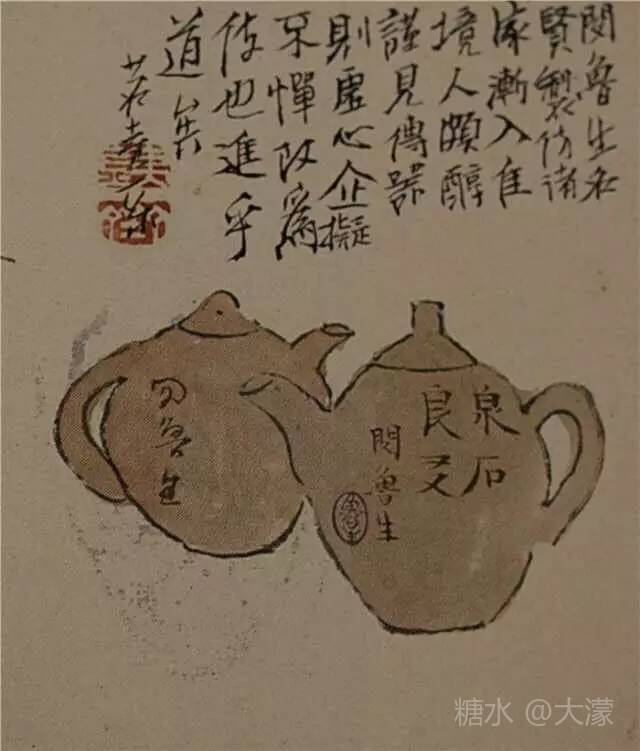 閔魯生名
賢製仿諸
家漸入佳
境人頗醇
謹見傳器
則虛心企擬
不憚改為
技也進乎
道矣
閔魯生
泉石
良友
閔魯生
魯生
糖水 @大濛